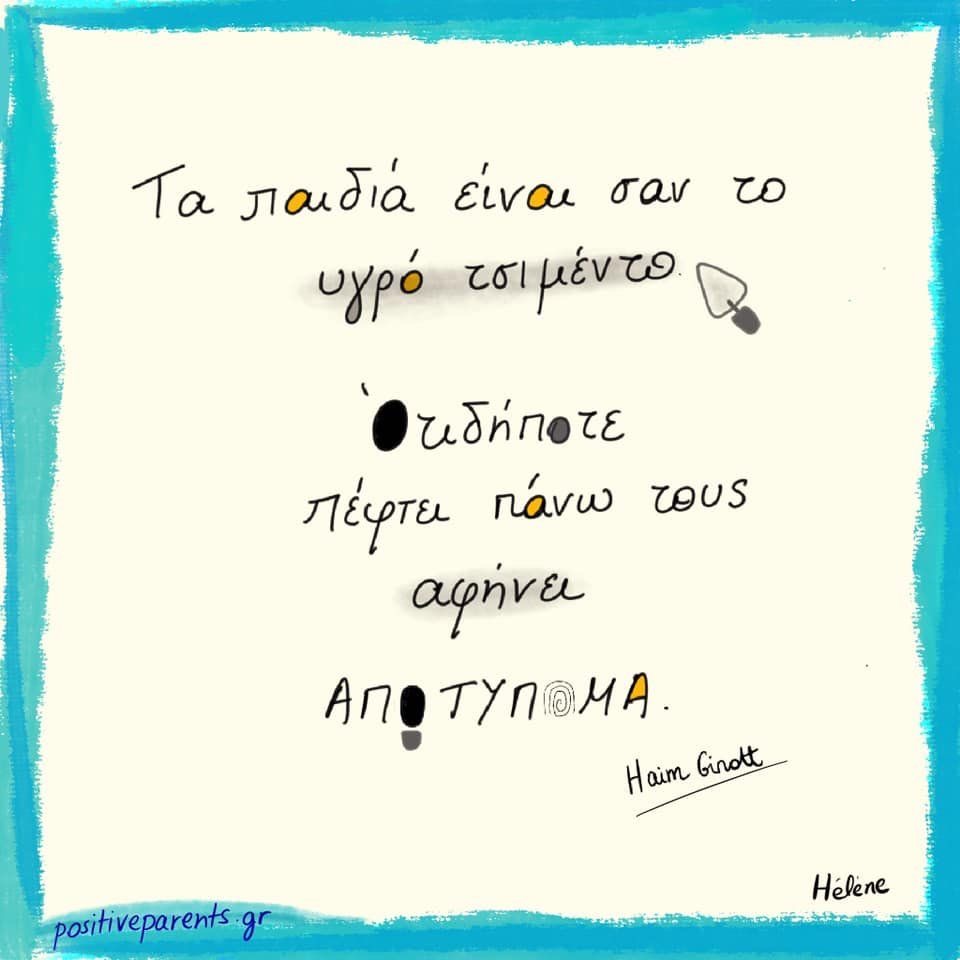 Τα παιδιά είναι σαν το
υγρό τσιμέντο.
Ότιδήποτε
πέφτει πάνω τους
αφήνει
ΑΠΟΤΥΠΟΜΑ.
Haim Ginott
Hélène
positiveparents.gr